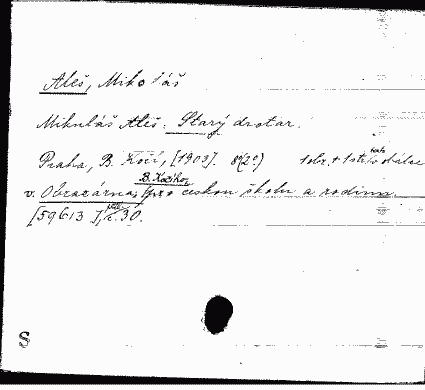 Aleš, Mikoláš
Mikuláš Aleš: Starý drotar.
Praha, B. Kočí, [1903]. 8°(2°) 1 obr. + 1 str. textu
B. Kočího
v. Obrazárna pro českou školu a rodinu.
[59613], č. 30.
S